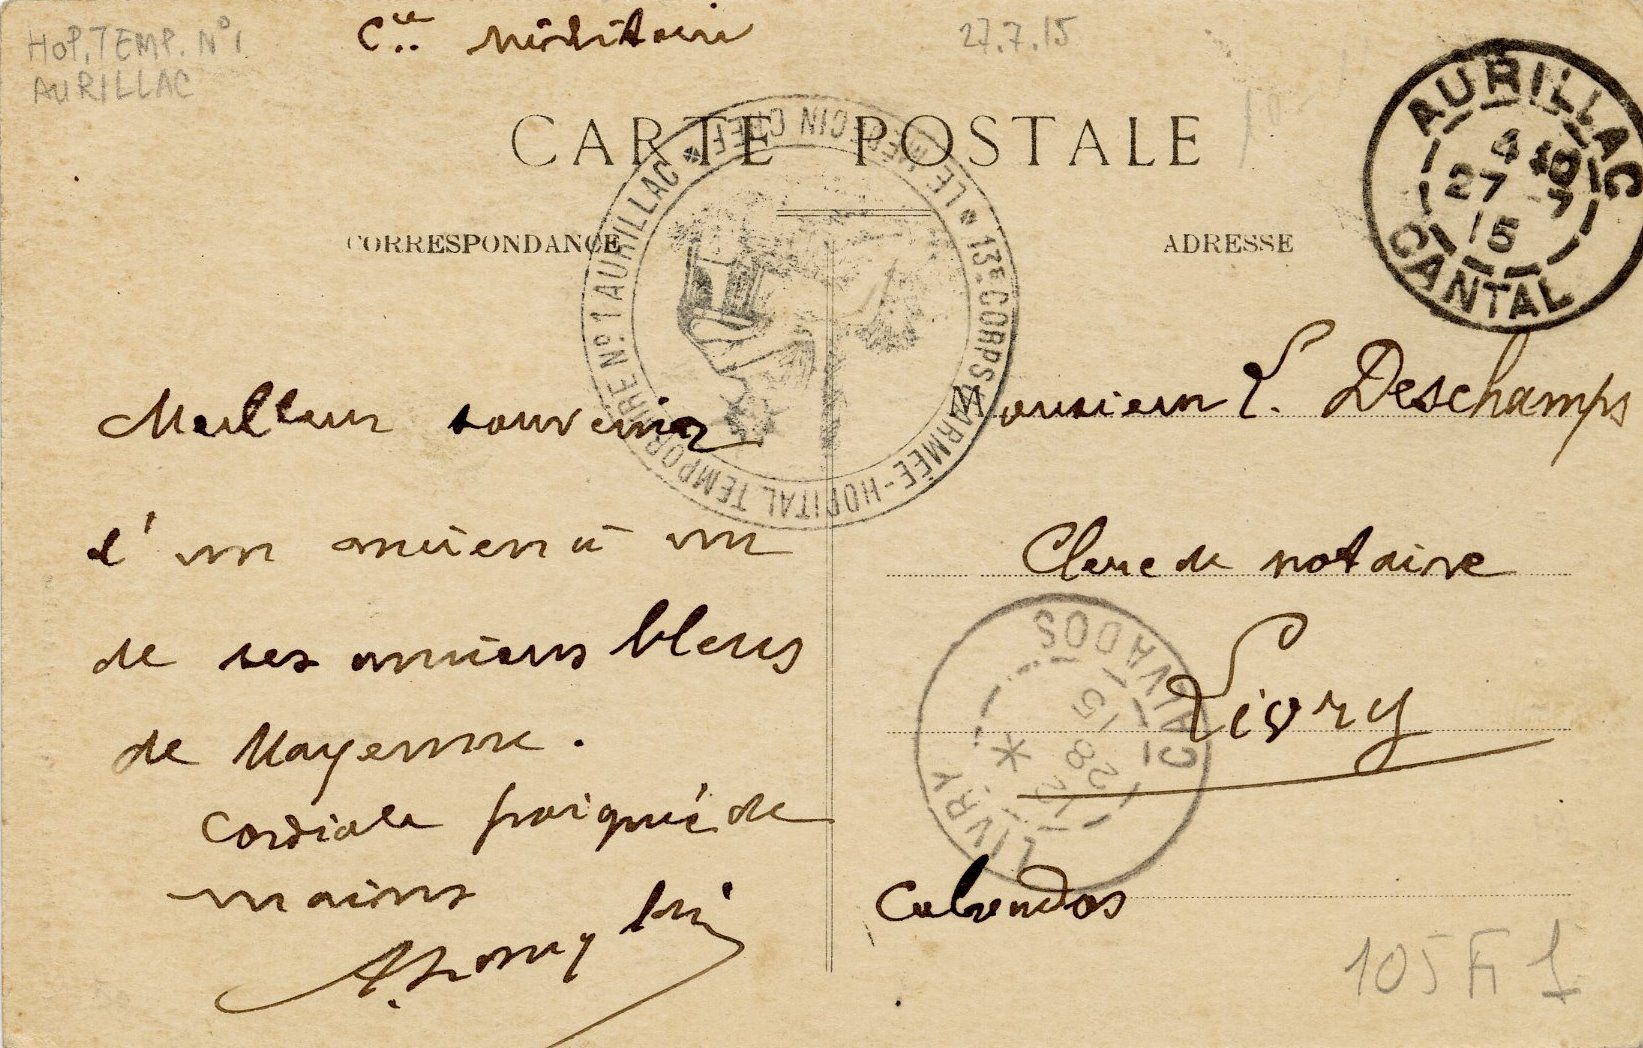 HOP. TEMP. N°1
AURILLAC
Cie militaire
27.7.15
CARTE POSTALE
CORRESPONDANCE
ADRESSE
AURILLAC
4 40
27 -7
15
CANTAL
13E CORPS D'ARMÉE - HOPITAL TEMPORAIRE No. 1 AURILLAC * LE MÉDECIN CHEF *
Meilleur souvenir
d'un ancien à un
de ses anciens bleus
de Mayenne.
Cordiale poignée de
mains
Monsieur E. Deschamps
Clerc de notaire
Livry
Calvados
LIVRY
28
15
CALVADOS
105 Fi 1